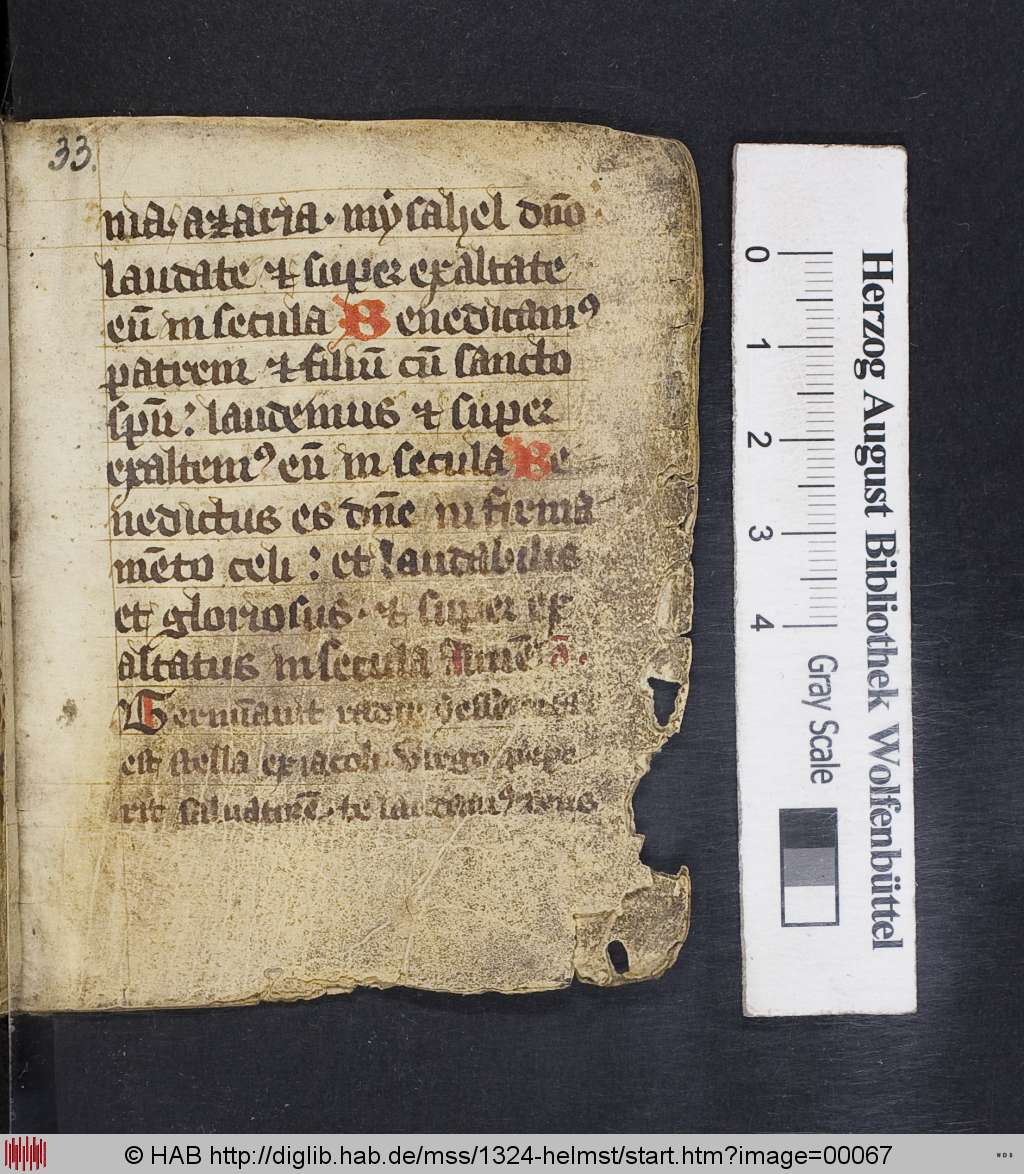 33.
ma. azaria. mysahel dn̄o
laudate ⁊ super exaltate
eū in secula Benedicamꝰ
patrem ⁊ filiū cū sancto
spū: laudemus ⁊ super
exaltemꝰ eū in secula Be
nedictus es dn̄e in firma
mēto celi: et laudabilis
et gloriosus. ⁊ super ex
altatus in secula Amē a.
Germīavit radix yesse
est stella ex iacob virgo pepe
rit salvatorē. te laudamꝰ deus
0
1
2
3
4
Gray Scale
Herzog August Bibliothek Wolfenbüttel
© HAB http://diglib.hab.de/mss/1324-helmst/start.htm?image=00067